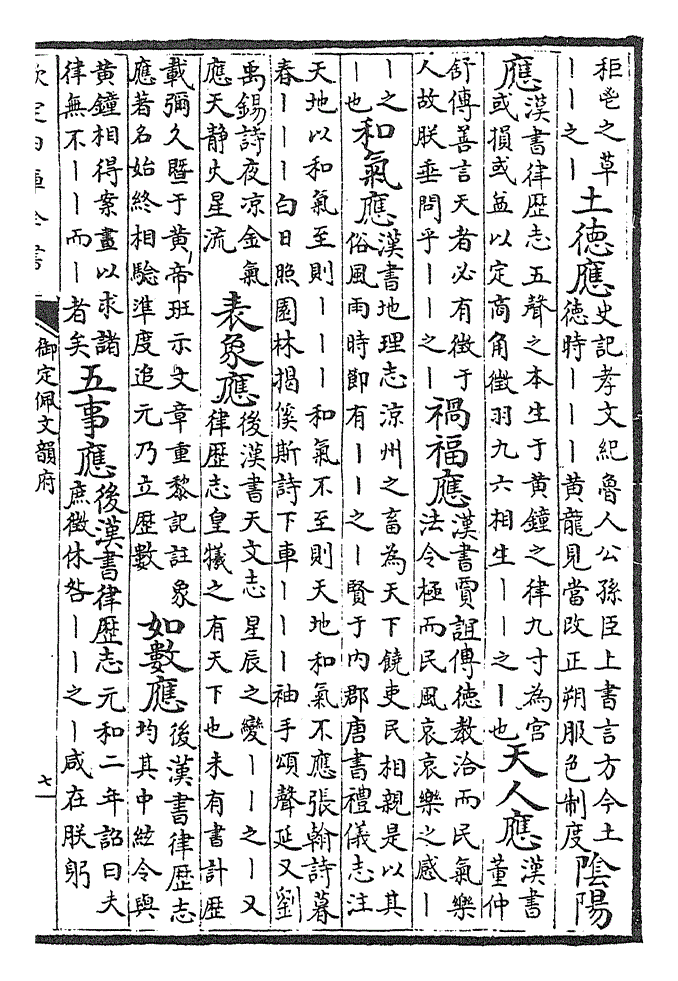 秬鬯之草丨丨之丨土德應史記孝文紀魯人公孫臣上書言方今土德時丨丨丨黄龍見當改正朔服色制度陰陽
應漢書律歴志五聲之本生于黄鐘之律九寸為宫或損或益以定商角徵羽九六相生丨丨之丨也天人應漢書董仲
舒傳善言天者必有徵于人故朕垂問乎丨丨之丨禍福應漢書賈誼傳德教洽而民氣樂法令極而民風哀哀樂之感丨
丨之丨也和氣應漢書地理志涼州之畜為天下饒吏民相親是以其俗風雨時節有丨丨之丨賢于内郡唐書禮儀志注
天地以和氣至則丨丨丨和氣不至則天地和氣不應張翰詩暮春丨丨丨白日照園林揭傒斯詩下車丨丨丨袖手頌聲延又劉
禹錫詩夜凉金氣應天静火星流表象應後漢書天文志星辰之變丨丨之丨又律歴志皇犧之有天下也未有書計歴
載彌久暨于黄帝班示文章重黎記註象應著名始終相驗準度追元乃立歴數如數應後漢書律歴志均其中絃令與
黄鐘相得案畫以求諸律無不丨丨而丨者矣五事應後漢書律歴志元和二年詔曰夫庶徵休咎丨丨之丨咸在朕躬
欽定四庫全書
御定佩文韻府
七